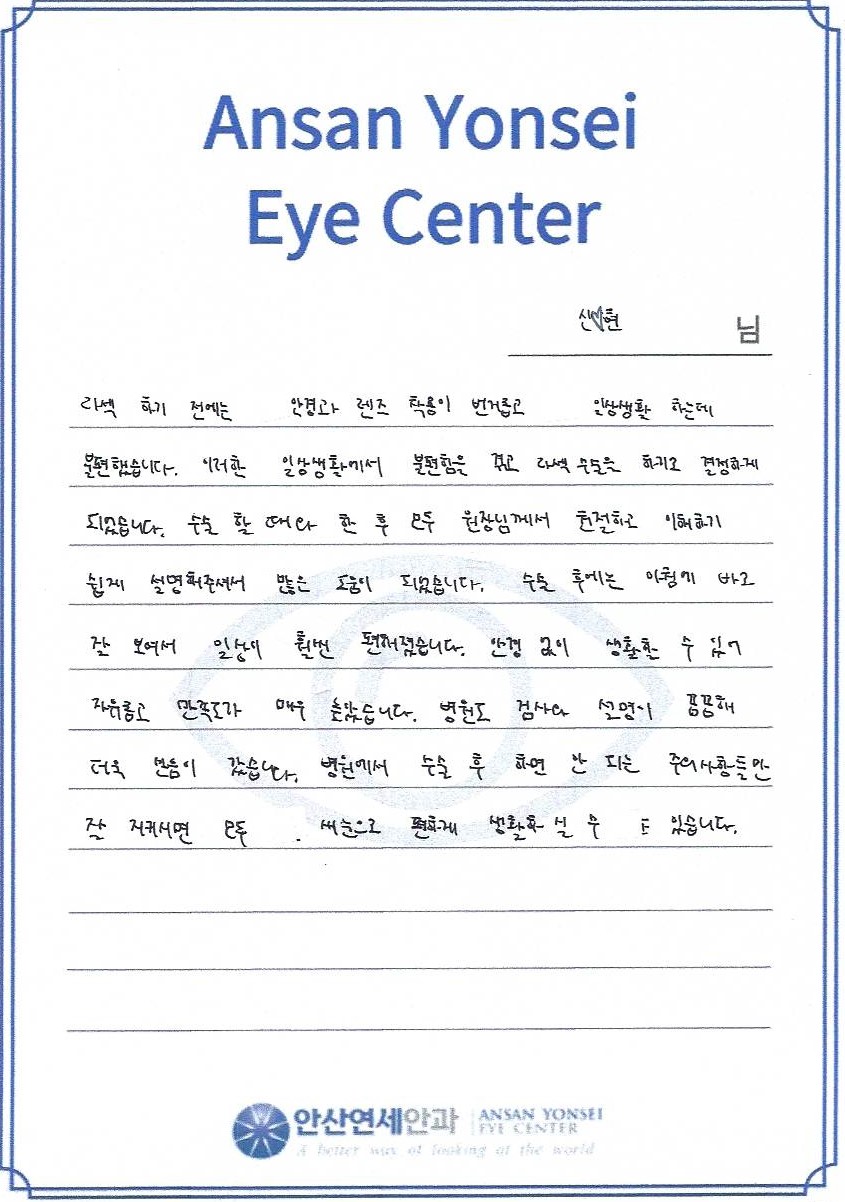 Ansan Yonsei
Eye Center
신♡현 님
라섹 하기 전에는 안경과 렌즈 착용이 번거롭고 일상생활 하는데
불편했습니다. 이러한 일상생활에서 불편함을 겪고 라섹 수술을 하기로 결정하게
되었습니다. 수술 할 때와 한 후 모두 원장님께서 친절하고 이해하기
쉽게 설명해주셔서 많은 도움이 되었습니다. 수술 후에는 아침에 바로
잘 보여서 일상이 훨씬 편해졌습니다. 안경 없이 생활할 수 있어
자유롭고 만족도가 매우 높았습니다. 병원도 검사와 설명이 꼼꼼해
더욱 믿음이 갔습니다. 병원에서 수술 후 하면 안 되는 주의사항들만
잘 지키시면 모두 새눈으로 편하게 생활하실 수 있습니다.
안산연세안과 ANSAN YONSEI
EYE CENTER
A better way of looking at the world